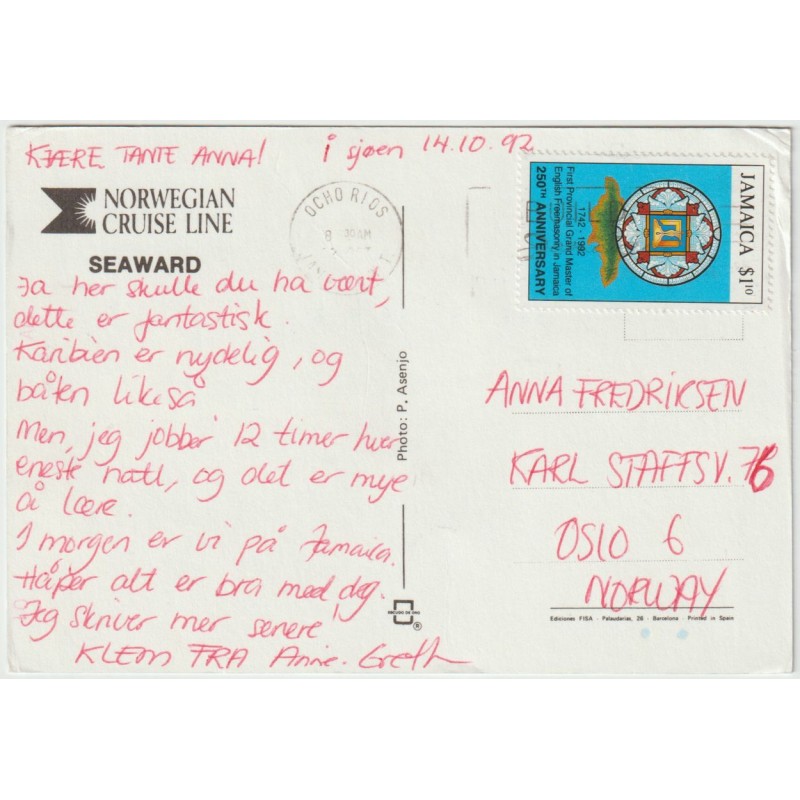 KJÆRE TANTE ANNA! i sjøen 14.10.92
NORWEGIAN
CRUISE LINE
SEAWARD
Ja her skulle du ha vært,
dette er fantastisk.
Karibien er nydelig, og
båten likeså
Men, jeg jobber 12 timer hver
eneste natt, og det er mye
å lære.
I morgen er vi på Jamaica.
Håper alt er bra med deg.
Jeg skriver mer senere!
KLEM FRA Anne-Greth
OCHO RIOS
8 30AM
Photo: P. Asenjo
ESCUDO DE ORO
®
JAMAICA $1.10
First Provincial Grand Master of
English Freemasonry in Jamaica
1742 - 1992
250TH ANNIVERSARY
ANNA FREDRIKSEN
KARL STAFFSV. 76
OSLO 6
NORWAY
Ediciones FISA - Palaudarias, 26 - Barcelona - Printed in Spain